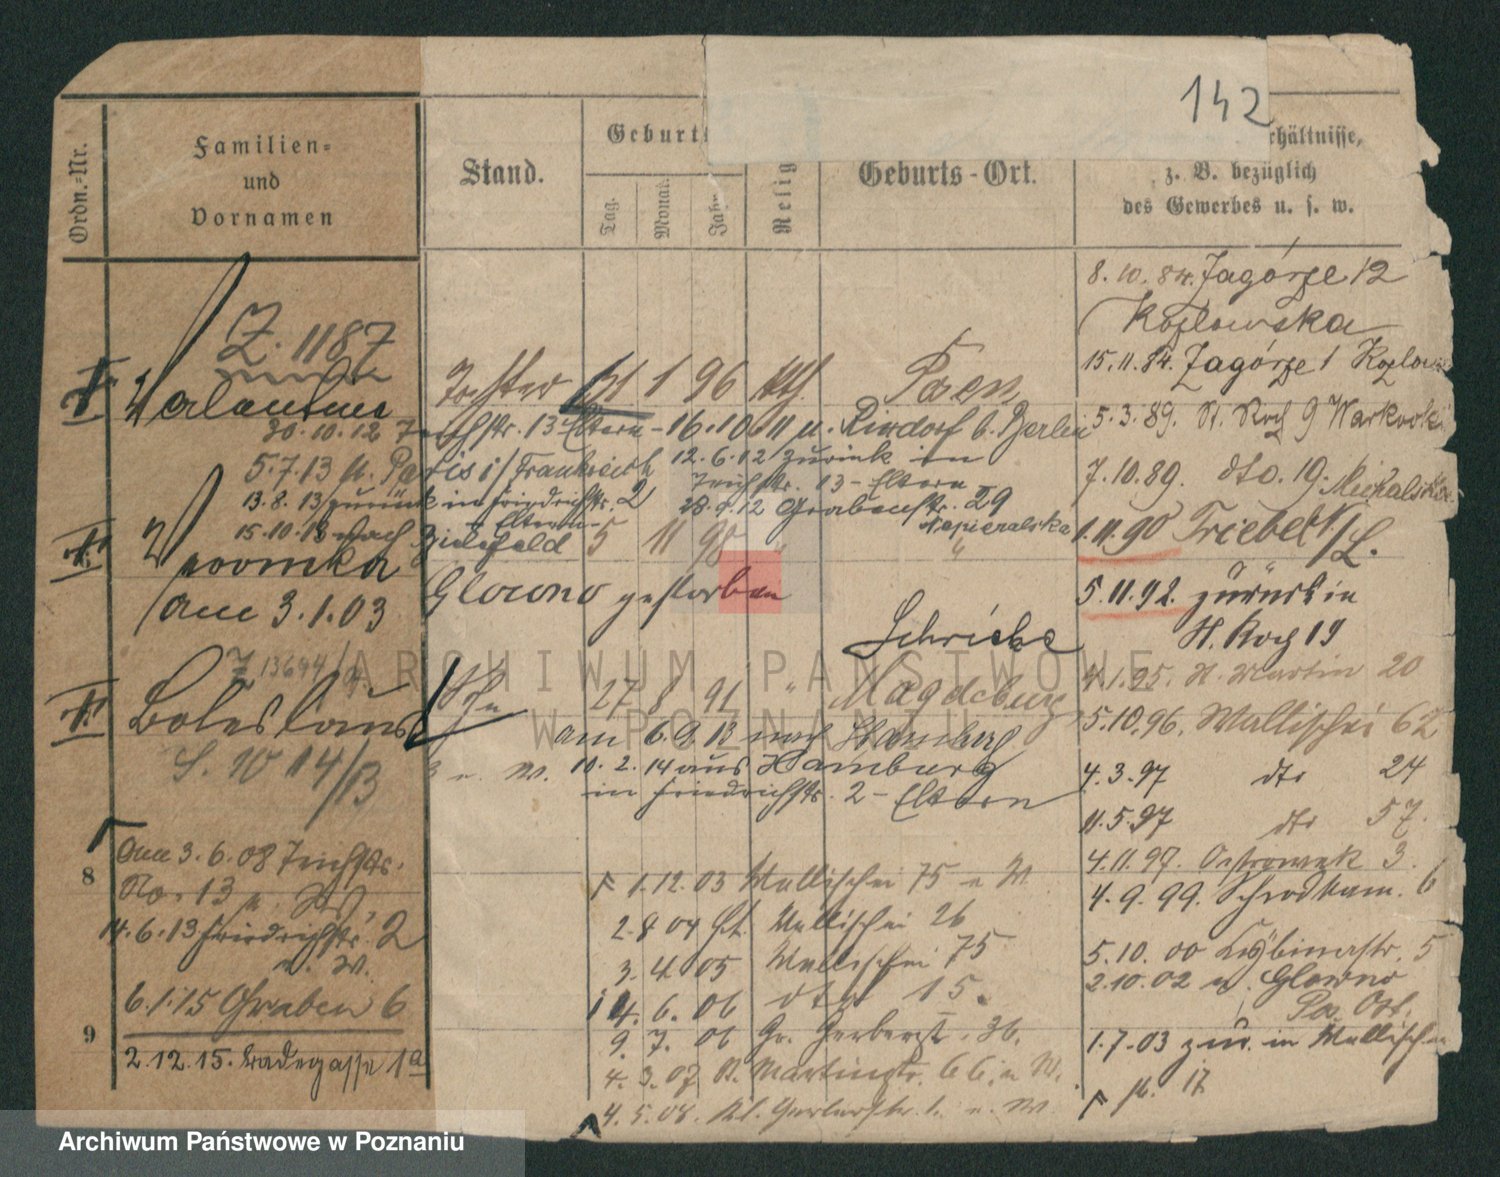 142
Ordn.-Nr.
Familien-
und
Vornamen
Stand.
Geburts
Tag.
Monat.
Jahr
Relig
Geburts-Ort.
hältnisse,
z. B. bezüglich
des Gewerbes u. s. w.
8. 10. 84. Zagórze 12
Kozlowska
15. 11. 84. Zagórze 1
Z. 1187
Valentine Tochter 1 96 kth. Posen
5. 3. 89. St. Roch 9
20. 10. 12 Teichstr. 13 Eltern - 16. 10 11 u. Rixdorf b. Berlin
7. 10. 89. dto. 19.
5. 7. 13 n. Paris i/Frankreich 12. 6. 12 zurück in
Teichstr. 13 - Eltern
13. 8. 13 zurück in Friedrichstr. 2
Eltern
12 Grabenstr. 29
15. 10. 13 nach Bielefeld
Veronika 5 11 98 " "
1. 11. 90 Triebel i/L.
am 3. 1. 03 Glowno gestorben
5. 11. 92. zurück in
St. Roch 19
Z 13694
Boleslaus Sohn 27 8 91 " Magdeburg
4. 1. 95. St. Martin 20
5. 10. 96. Wallischei 62
am 6. 9. 12 nach Hamburg
10. 2. 14 aus Hamburg
in Friedrichstr. 2 - Eltern
4. 3. 97 dto 24
11. 5. 97 dto 57.
4. 11. 97. Ostrowek 3.
8
am 3. 6. 08 Teichstr.
No. 13
14. 6. 13 Friedrichstr. 2
u. W.
6. 1. 15 Graben 6
9
2. 12. 15. Badegasse 1a
1. 12. 03 Wallischei 75 u W
2. 8 04 Wallischei 26
3. 4. 05 Wallischei 75
4. 6. 06 dto 15.
9. 7. 06 Gr. Gerberst. 36.
4. 3. 07 St. Martinstr. 66. u W.
4. 5. 08. Kl. Gerberstr. 1. u. W
4. 9. 99. Schrodkam. 6
5. 10. 00 Cybinastr. 5
2. 10. 02 n. Glowno
Po. Ost.
1. 7. 03 zur. in Wallischei
ARCHIWUM PAŃSTWOWE
W POZNANIU
Archiwum Państwowe w Poznaniu